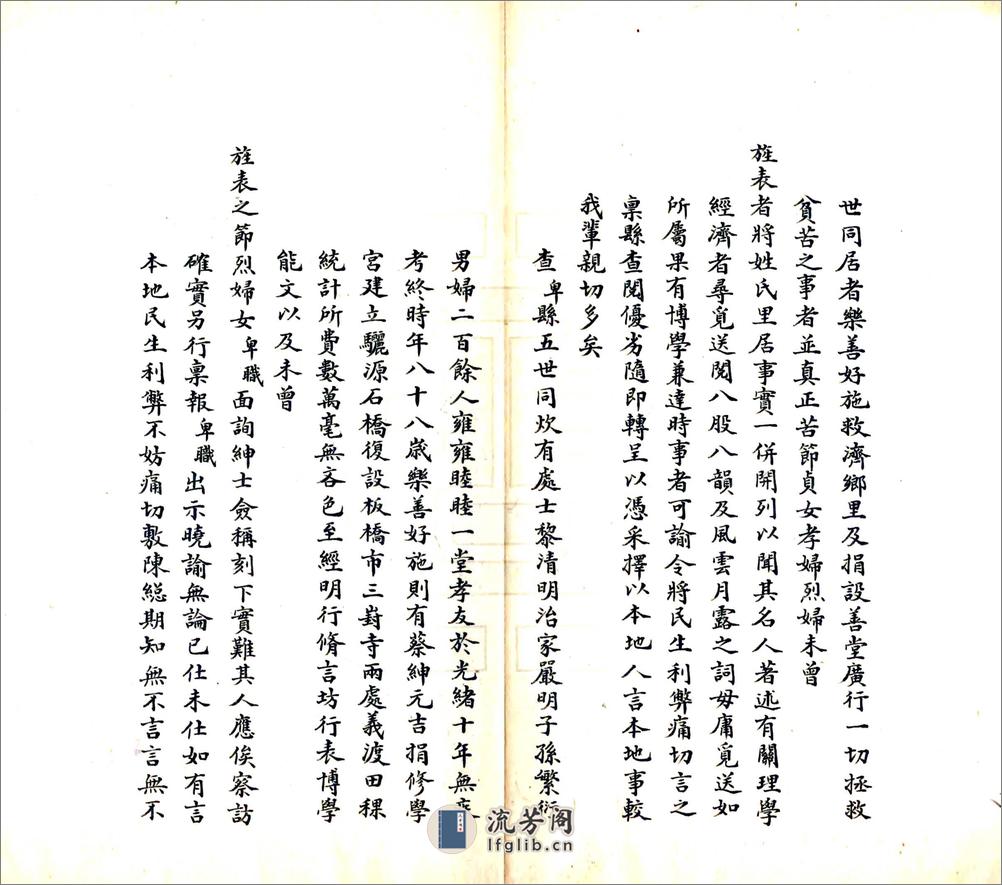 世同居者樂善好施救濟鄉里及捐設善堂廣行一切拯救
貧苦之事者並真正苦節貞女孝婦烈婦未曾
旌表者將姓氏里居事實一併開列以聞其名人著述有關理學
經濟者尋覓送閱八股八韻及風雲月露之詞毋庸覓送如
所屬果有博學兼達時事者可諭令將民生利弊痛切言之
稟縣查閱優劣隨即轉呈以憑采擇以本地人言本地事較
我輩親切多矣
查卑縣五世同炊有處士黎清明治家嚴明子孫繁衍
男婦二百餘人雍雍睦睦一堂孝友於光緒十年無疾
考終時年八十八歲樂善好施則有蔡紳元吉捐修學
宮建立驪源石橋復設板橋市三封寺兩處義渡田稞
統計所費數萬毫無吝色至經明行脩言坊行表博學
能文以及未曾
旌表之節烈婦女卑職面詢紳士僉稱刻下實難其人應俟察訪
確實另行稟報卑職出示曉諭無論已仕未仕如有言
本地民生利弊不妨痛切敷陳總期知無不言言無不
流芳阁
lfglib.cn